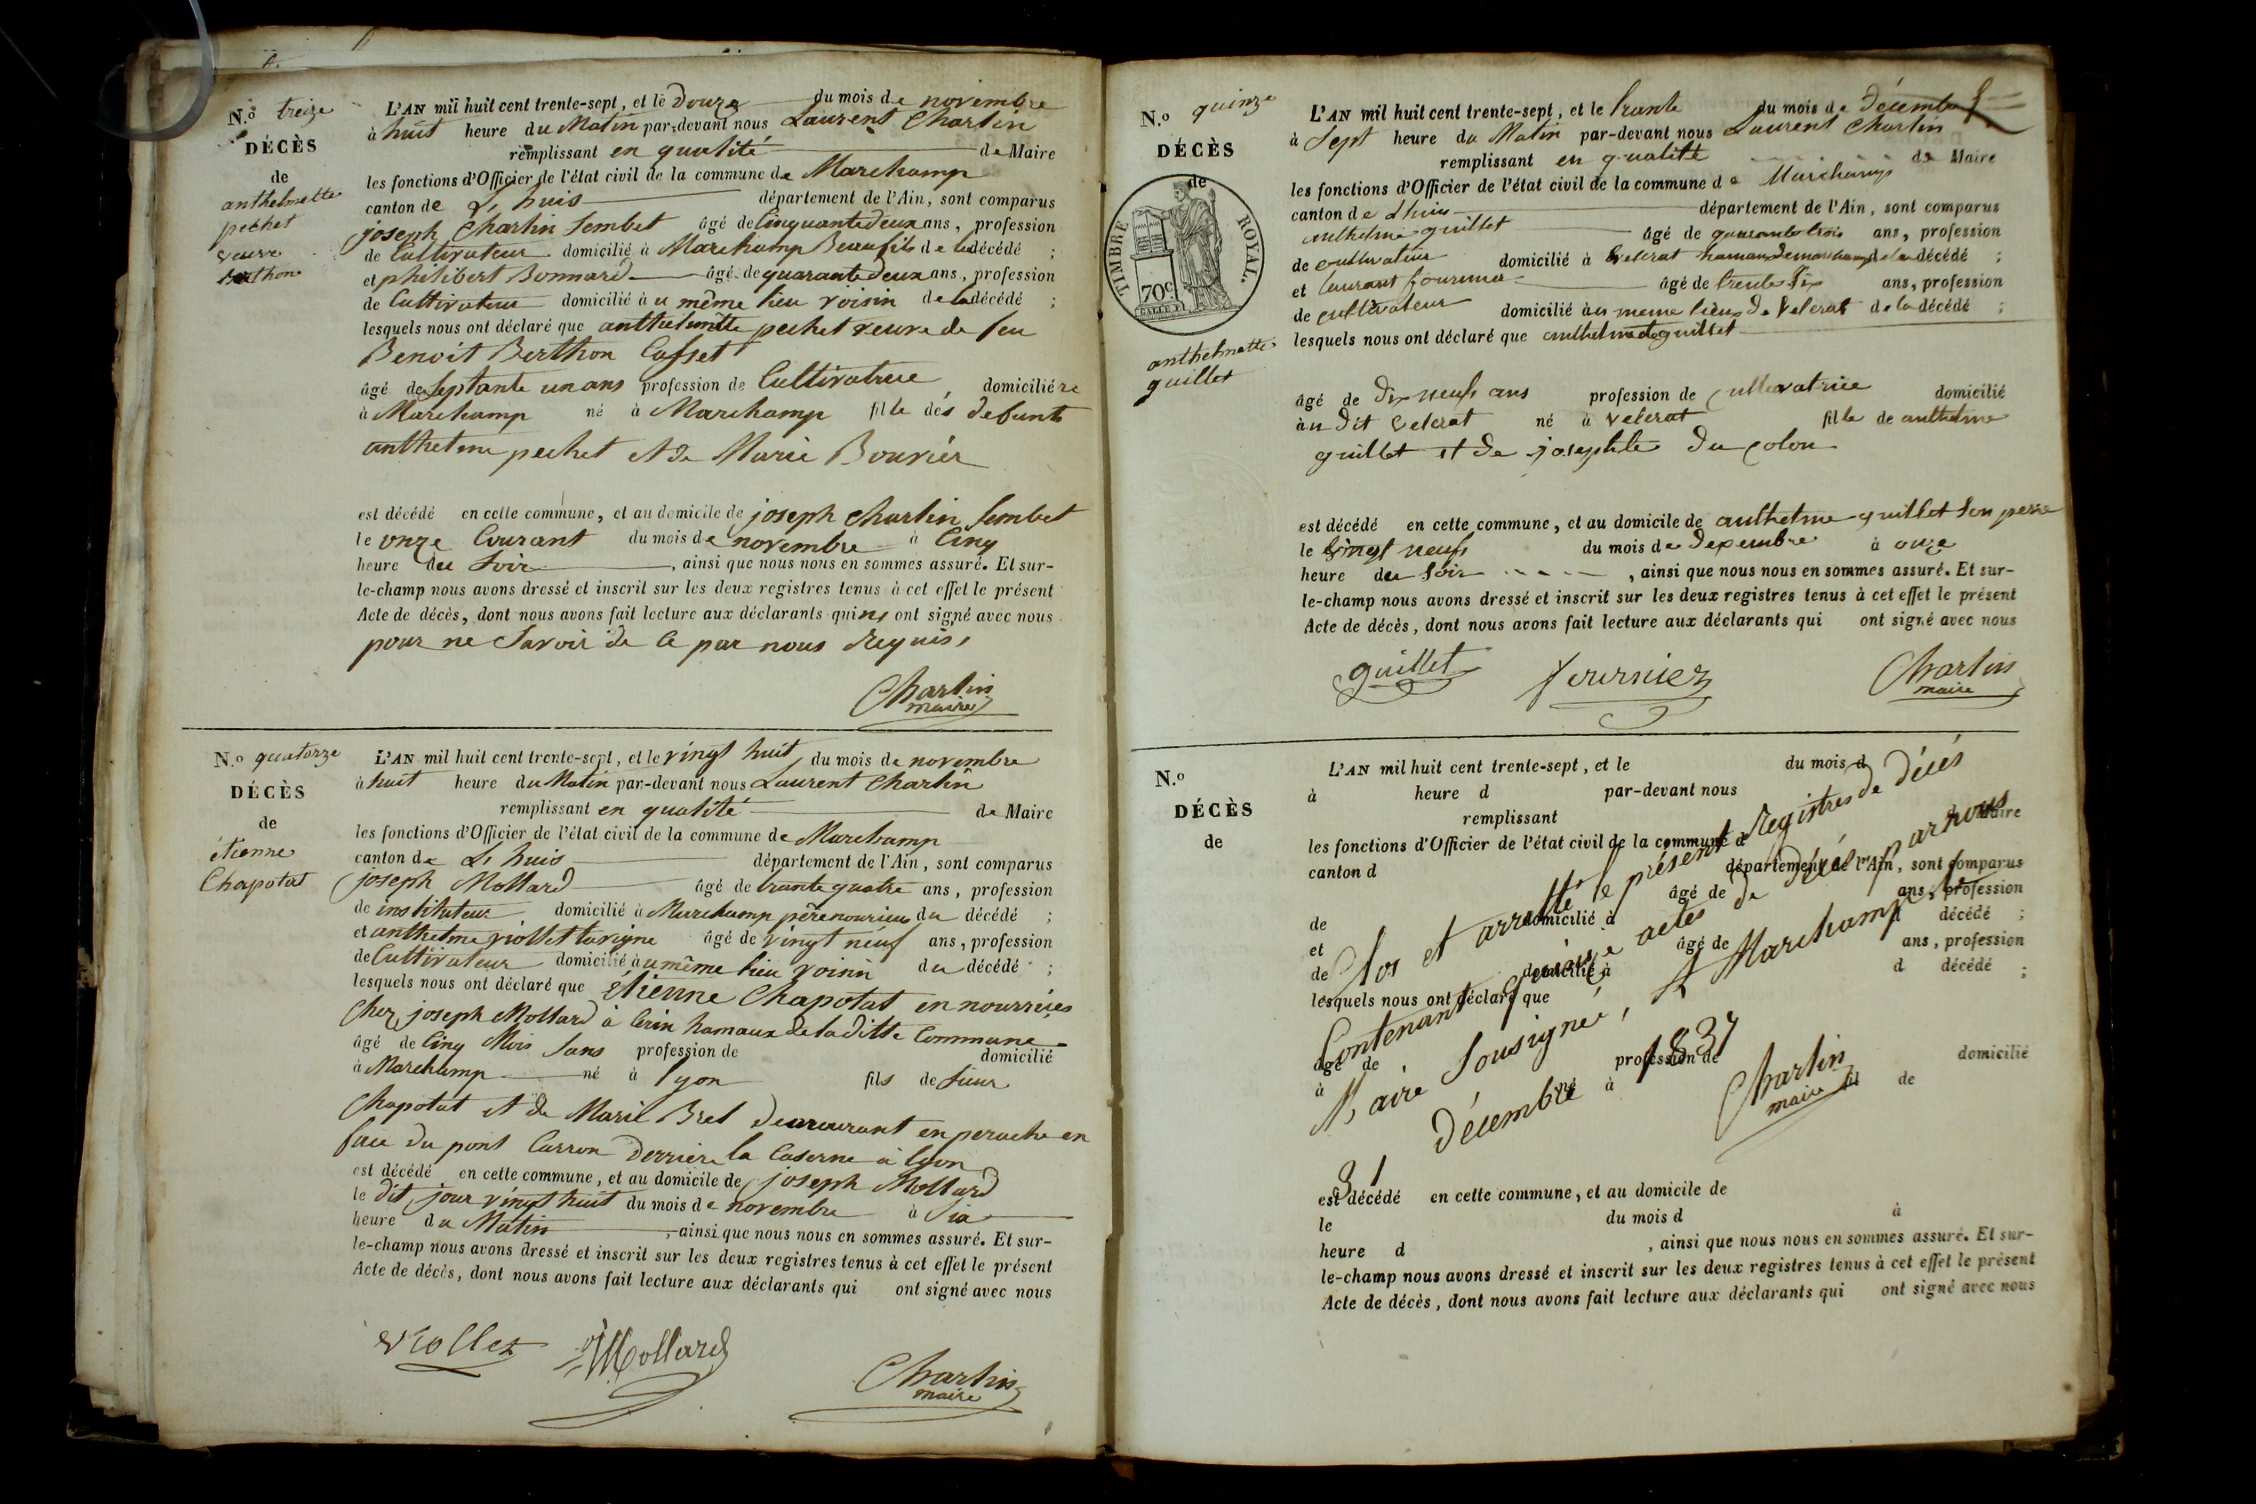 N.º treize
DÉCÈS
de
anthelmette
pechet
veuve
berthon
L'AN mil huit cent trente-sept, et le Douze du mois de novembre
à huit heure du Matin par-devant nous Laurent Charlin
remplissant en qualité de Maire
les fonctions d'Officier de l'état civil de la commune de Marchamp
canton de L'huis département de l'Ain, sont comparus
joseph Charlin Sembet âgé de Cinquante deux ans, profession
de Cultivateur domicilié à Marchamp Beaufils de la décédé ;
et philibert Bonnard âgé de quarante deux ans, profession
de Cultivateur domicilié à u même lieu voisin de la décédé ;
lesquels nous ont déclaré que anthelmette pechet veuve de feu
Benoit Berthon Cusset
âgé de Septante un ans profession de Cultivatrice domiciliére
à Marchamp né à Marchamp fille dés defunts
anthelme pechet et de Marie Bouvier
est décédé en cette commune, et au domicile de joseph Charlin Sembet
le onze Courant du mois de novembre à Cinq
heure du Soir , ainsi que nous nous en sommes assuré. Et sur-
le-champ nous avons dressé et inscrit sur les deux registres tenus à cet effet le présent
Acte de décès, dont nous avons fait lecture aux déclarants qui n, ont signé avec nous
pour ne Savoir de Ce par nous Requis,
Charlin
maire
N.º quatorze
DÉCÈS
de
étienne
Chapotat
L'AN mil huit cent trente-sept, et le vingt huit du mois de novembre
à huit heure du Matin par-devant nous Laurent Charlin
remplissant en qualité de Maire
les fonctions d'Officier de l'état civil de la commune de Marchamp
canton de L'huis département de l'Ain, sont comparus
joseph Mollard âgé de trante quatre ans, profession
de instituteur domicilié à Marchamp père nouricier du décédé ;
et anthelme viollet tavigne âgé de vingt neuf ans, profession
de Cultivateur domicilié à u même lieu voisin du décédé ;
lesquels nous ont déclaré que étienne Chapotat en nourrices
Chez joseph Mollard à Cerin hamaux de la ditte Commune
âgé de Cinq Mois Sans profession de domicilié
à Marchamp né à lyon fils de Sieur
Chapotat et de Marie Bret demeurant en perache en
face du pont Carron Derriere la Caserne à lyon
est décédé en cette commune, et au domicile de joseph Mollard
le dit jour vingt huit du mois de novembre à Six
heure du Matin , ainsi que nous nous en sommes assuré. Et sur-
le-champ nous avons dressé et inscrit sur les deux registres tenus à cet effet le présent
Acte de décès, dont nous avons fait lecture aux déclarants qui ont signé avec nous
viollet Mollard
Charlin
maire
N.º quinze
DÉCÈS
de
TIMBRE ROYAL.
70c
anthelmette
guillet
L'AN mil huit cent trente-sept, et le trante du mois de décembre
à Sept heure du Matin par-devant nous Laurent Charlin
remplissant en qualité de Maire
les fonctions d'Officier de l'état civil de la commune de Marchamp
canton de Lhuis département de l'Ain, sont comparus
anthelme guillet âgé de quarante trois ans, profession
de cultivateur domicilié à Velerat hamau de marchamp de la décédé ;
et Laurant fournier âgé de trente Six ans, profession
de cultivateur domicilié àu meme lieux de Velerat de la décédé ;
lesquels nous ont déclaré que anthelmette guillet
âgé de Dix neufs ans profession de cultivatrice domicilié
àu dit Velerat né à Velerat fille de anthelme
guillet et de josephte du colon
est décédé en cette commune, et au domicile de anthelme guillet Son pere
le Vingt neufs du mois de decembre à onze
heure du Soir , ainsi que nous nous en sommes assuré. Et sur-
le-champ nous avons dressé et inscrit sur les deux registres tenus à cet effet le présent
Acte de décès, dont nous avons fait lecture aux déclarants qui ont signé avec nous
guillet fournier Charlin
maire
N.º
DÉCÈS
de
L'AN mil huit cent trente-sept, et le du mois d
à heure d par-devant nous
remplissant Maire
les fonctions d'Officier de l'état civil de la commune d
canton d département de l'Ain, sont comparus
âgé de ans, profession
de domicilié à d décédé ;
et âgé de ans, profession
de domicilié à d décédé ;
lesquels nous ont déclaré que
âgé de profession de domicilié
à né à fil de
Clos et arretté le présent Registres de décés
Contenant quinze actes de décés par nous
Maire Sousigné, à Marchamp, le
31 décembre 1837
Charlin
maire
est décédé en cette commune, et au domicile de
le du mois d à
heure d , ainsi que nous nous en sommes assuré. Et sur-
le-champ nous avons dressé et inscrit sur les deux registres tenus à cet effet le présent
Acte de décès, dont nous avons fait lecture aux déclarants qui ont signé avec nous